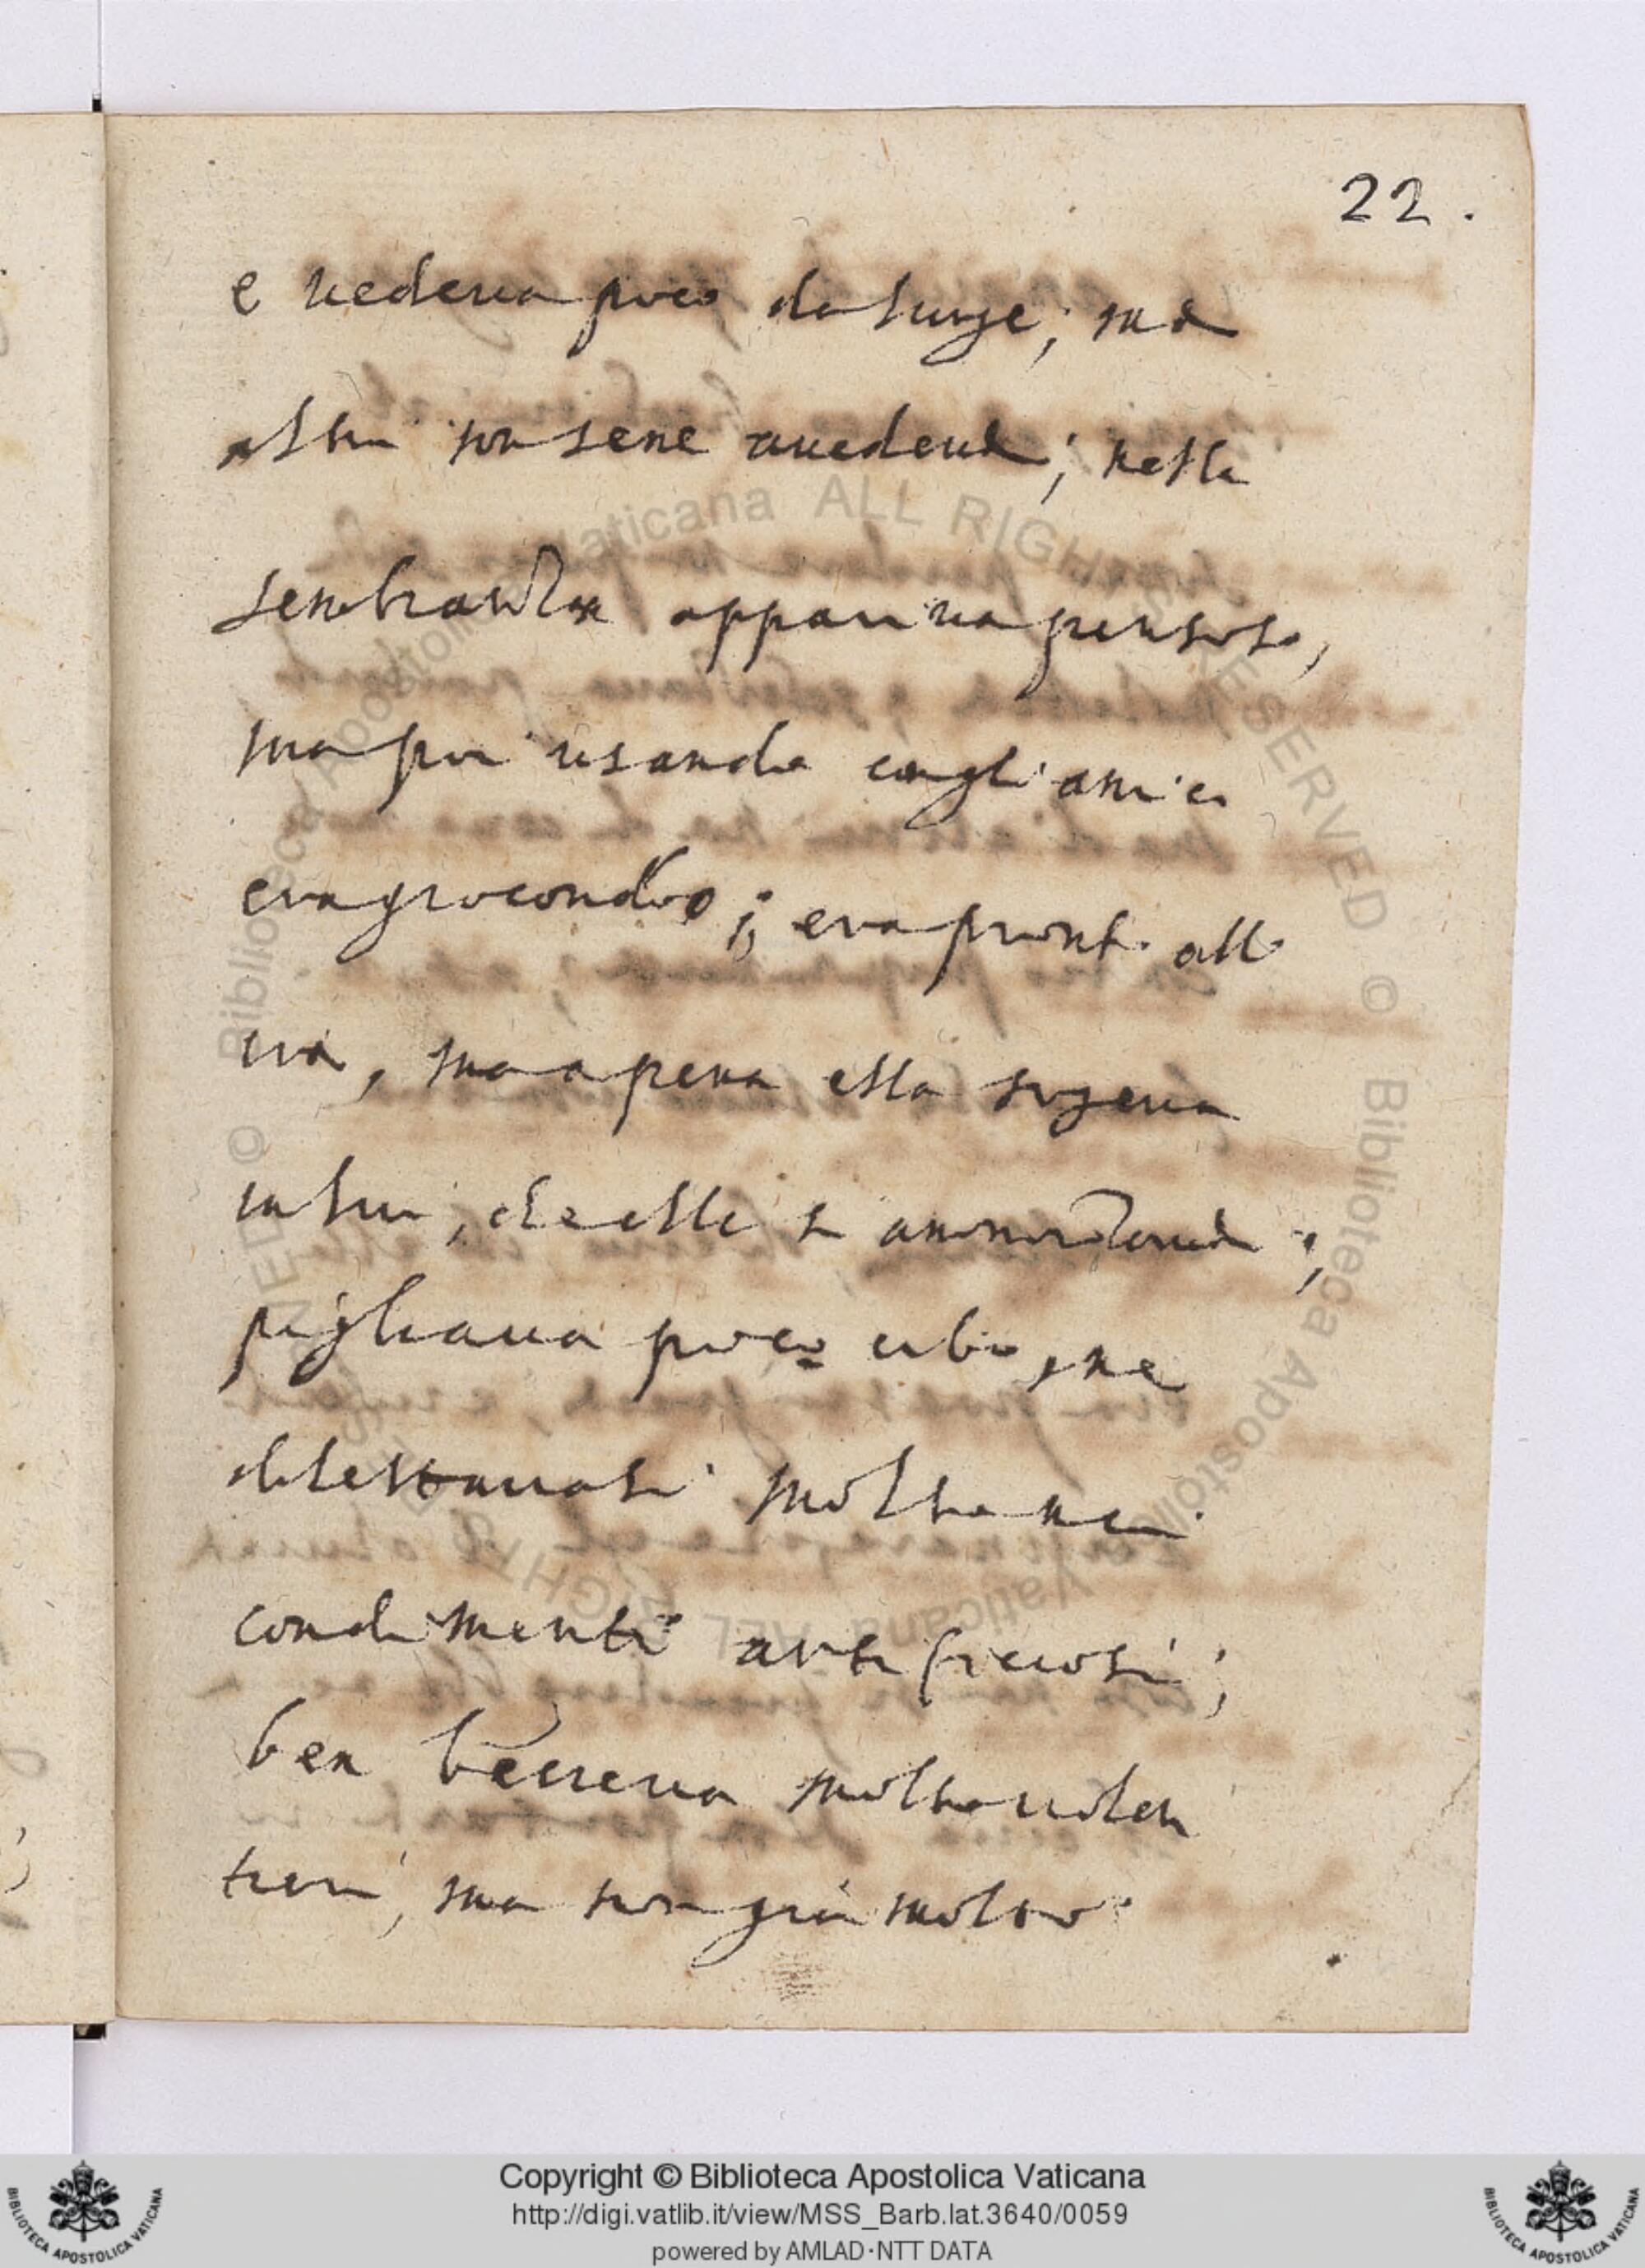 22.
e uedeua poco da lunge; ma
altri non sene auedeua; nella
sembianza appariua pensoso,
ma poi usando con gli amici
era giocondo; era pronto all'
ira, ma apena ella sorgeua
in lui, che ella si ammorzaua;
pigliaua poco cibo, ne
dilettauasi molto nei
condimenti artificiosi;
ben beeueua molto uolen
tieri, ma non già molto.
Copyright © Biblioteca Apostolica Vaticana
http://digi.vatlib.it/view/MSS_Barb.lat.3640/0059
powered by AMLAD·NTT DATA